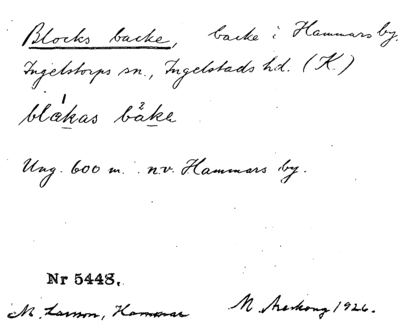 Blocks backe, backe i Hammars by.
Ingelstorps sn., Ingelstads hd. (K.)
blåkas bake
Ung. 600 m. n.v. Hammars by.
Nr 5448.
M. Larsson, Hammar M 1926.